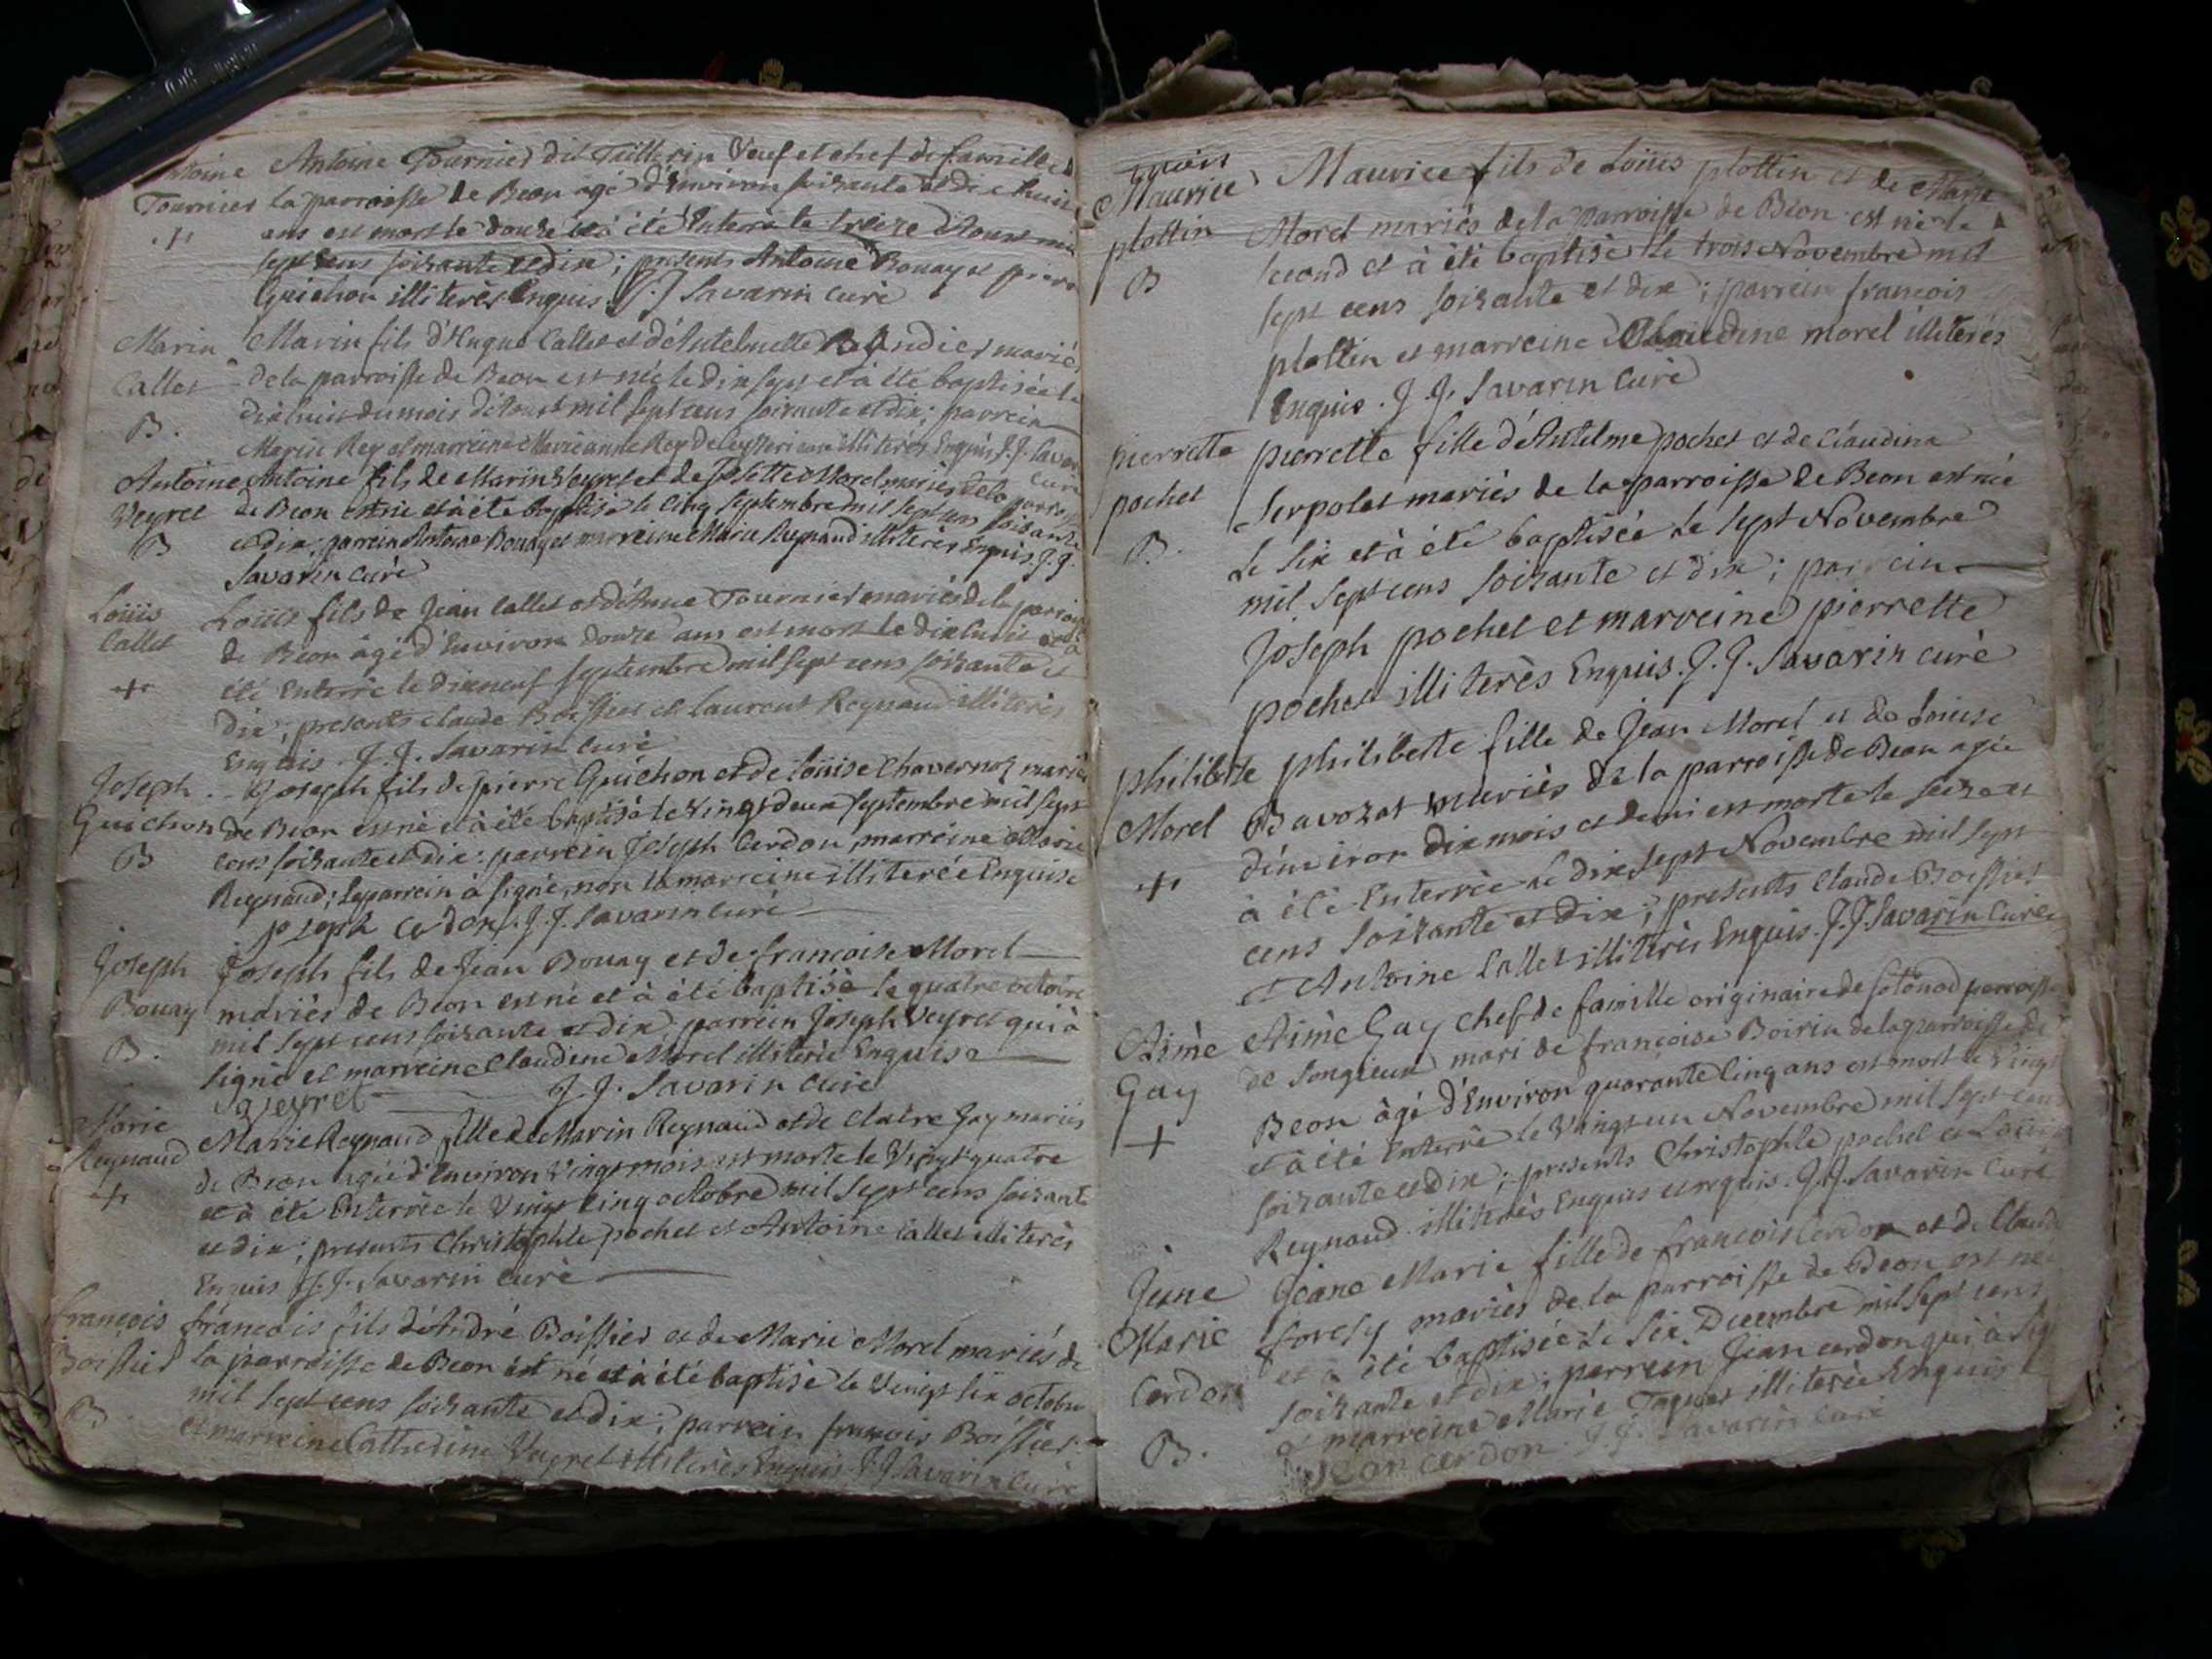 Antoine Antoine Tournier dit Taillerin Veuf et chef de famille
Tournier la parroisse de Beon agé d'Environ soixante et dix huit
+ ans est mort le douze et à été Enterré le treize d'Aoust mil
sept cens soixante et dix; presents Antoine Bouay et pierre
Guichon illiterés Enquis. J. J. Savarin curé
Marin Marin fils d'Hugue Callet et d'Antelmette mariés
Callet de la parroisse de Beon est né le dix sept et à été baptisé le
B. dix huit du mois d'Aoust mil sept cens soixante et dix; parrein
Marin Rey et marreine Marie anne Rey de illiterés Enquis J. J. Savarin
curé
Antoine Antoine fils de Marin Veyret et de Josette Morel mariés de la parroisse
Veyret de Beon est né et à été baptisé le cinq septembre mil sept cens soixante
B et dix; parrein Antoine Bouay et marreine Marie Reynaud illiterés Enquis. J. J.
Savarin curé
Loüis Loüis fils de Jean Callet et d'Anne Tournier mariés de la parroisse
Callet de Beon âgé d'Environ douze ans est mort le dix huit et à
+ été Enterré le dix neuf septembre mil sept cens soixante et
dix; presents Claude Boissier et laurent Reynaud illiterés
Enquis. J. J. Savarin curé
Joseph Joseph fils de pierre Guichon et de Loüise Chavernoz mariés
Guichon de Beon est né et à été baptisé le vingt deux septembre mil sept
B cens soixante et dix; parrein Joseph Cerdon, marreine Marie
Reynaud; le parrein à signé, non la marreine illiterée Enquise
joseph cerdon. J. J. Savarin curé
Joseph Joseph fils de Jean Bouay et de francoise Morel
Bouay mariés de Beon est né et à été baptisé le quatre octobre
B. mil sept cens soixante et dix; parrein Joseph Veyret qui à
signé et marreine Claudine Morel illiterée Enquise
J veyret J. J. Savarin curé
Marie Marie Reynaud fille de Marin Reynaud et de Claire Gay mariés
Reynaud de Beon agée d'Environ vingt mois est morte le Vingt quatre
+ et à été Enterrée le Vingt cinq octobre mil sept cens soixante
et dix; presents Christophle pochet et Antoine Callet illiterés
Enquis J. J. Savarin curé
francois francois fils d'André Boissier et de Marie Morel mariés de
Boissier la parroisse de Beon est né et à été baptisé le Vingt six octobre
B. mil sept cens soixante et dix; parrein francois Boissier
et marreine Catherine Veyret illiterés Enquis J. J. Savarin curé
Maurice Maurice fils de Loüis plottin et de Marie
plottin Morel mariés de la parroisse de Beon est né le
B second et à été baptisé le trois Novembre mil
sept cens soixante et dix; parrein francois
plottin et marreine Claudine morel illiterés
Enquis. J. J. Savarin Curé
pierrette pierrette fille d'Antelme pochet et de Claudine
pochet Serpolet mariés de la parroisse de Beon est née
B. le six et à été baptisée le sept Novembre
mil sept cens soixante et dix; parrein
Joseph pochet et marreine pierrette
pochet illiterés Enquis. J. J. Savarin curé
philiberte philiberte fille de Jean Morel et de Loüise
Morel Bavozat mariés de la parroisse de Beon agée
+ d'environ dix mois et demi est morte le seize et
à été Enterrée le dix sept Novembre mil sept
cens soixante et dix; presents Claude Boissier
et Antoine Callet illiterés Enquis. J. J. Savarin Curé
Aimé Aimé Gay chef de famille originaire de sotonod parroisse
Gay de Songieux mari de françoise Boirin de la parroisse de
+ Beon âgé d'Environ quarante cinq ans est mort le Vingt
et à été Enterré le Vingt un Novembre mil sept cens
soixante et dix; presents Christophle pochet et Loüis
Reynaud illiterés Enquis et requis. J. J. Savarin Curé
Jeane Jeane Marie fille de francois Cerdon et de Claude
Marie mariés de la parroisse de Beon est née
Cerdon et à été baptisée le six Decembre mil sept cens
soixante et dix; parrein Jean cerdon qui à
B. et marreine Marie illiterée Enquis
Jean cerdon J. J. Savarin Curé